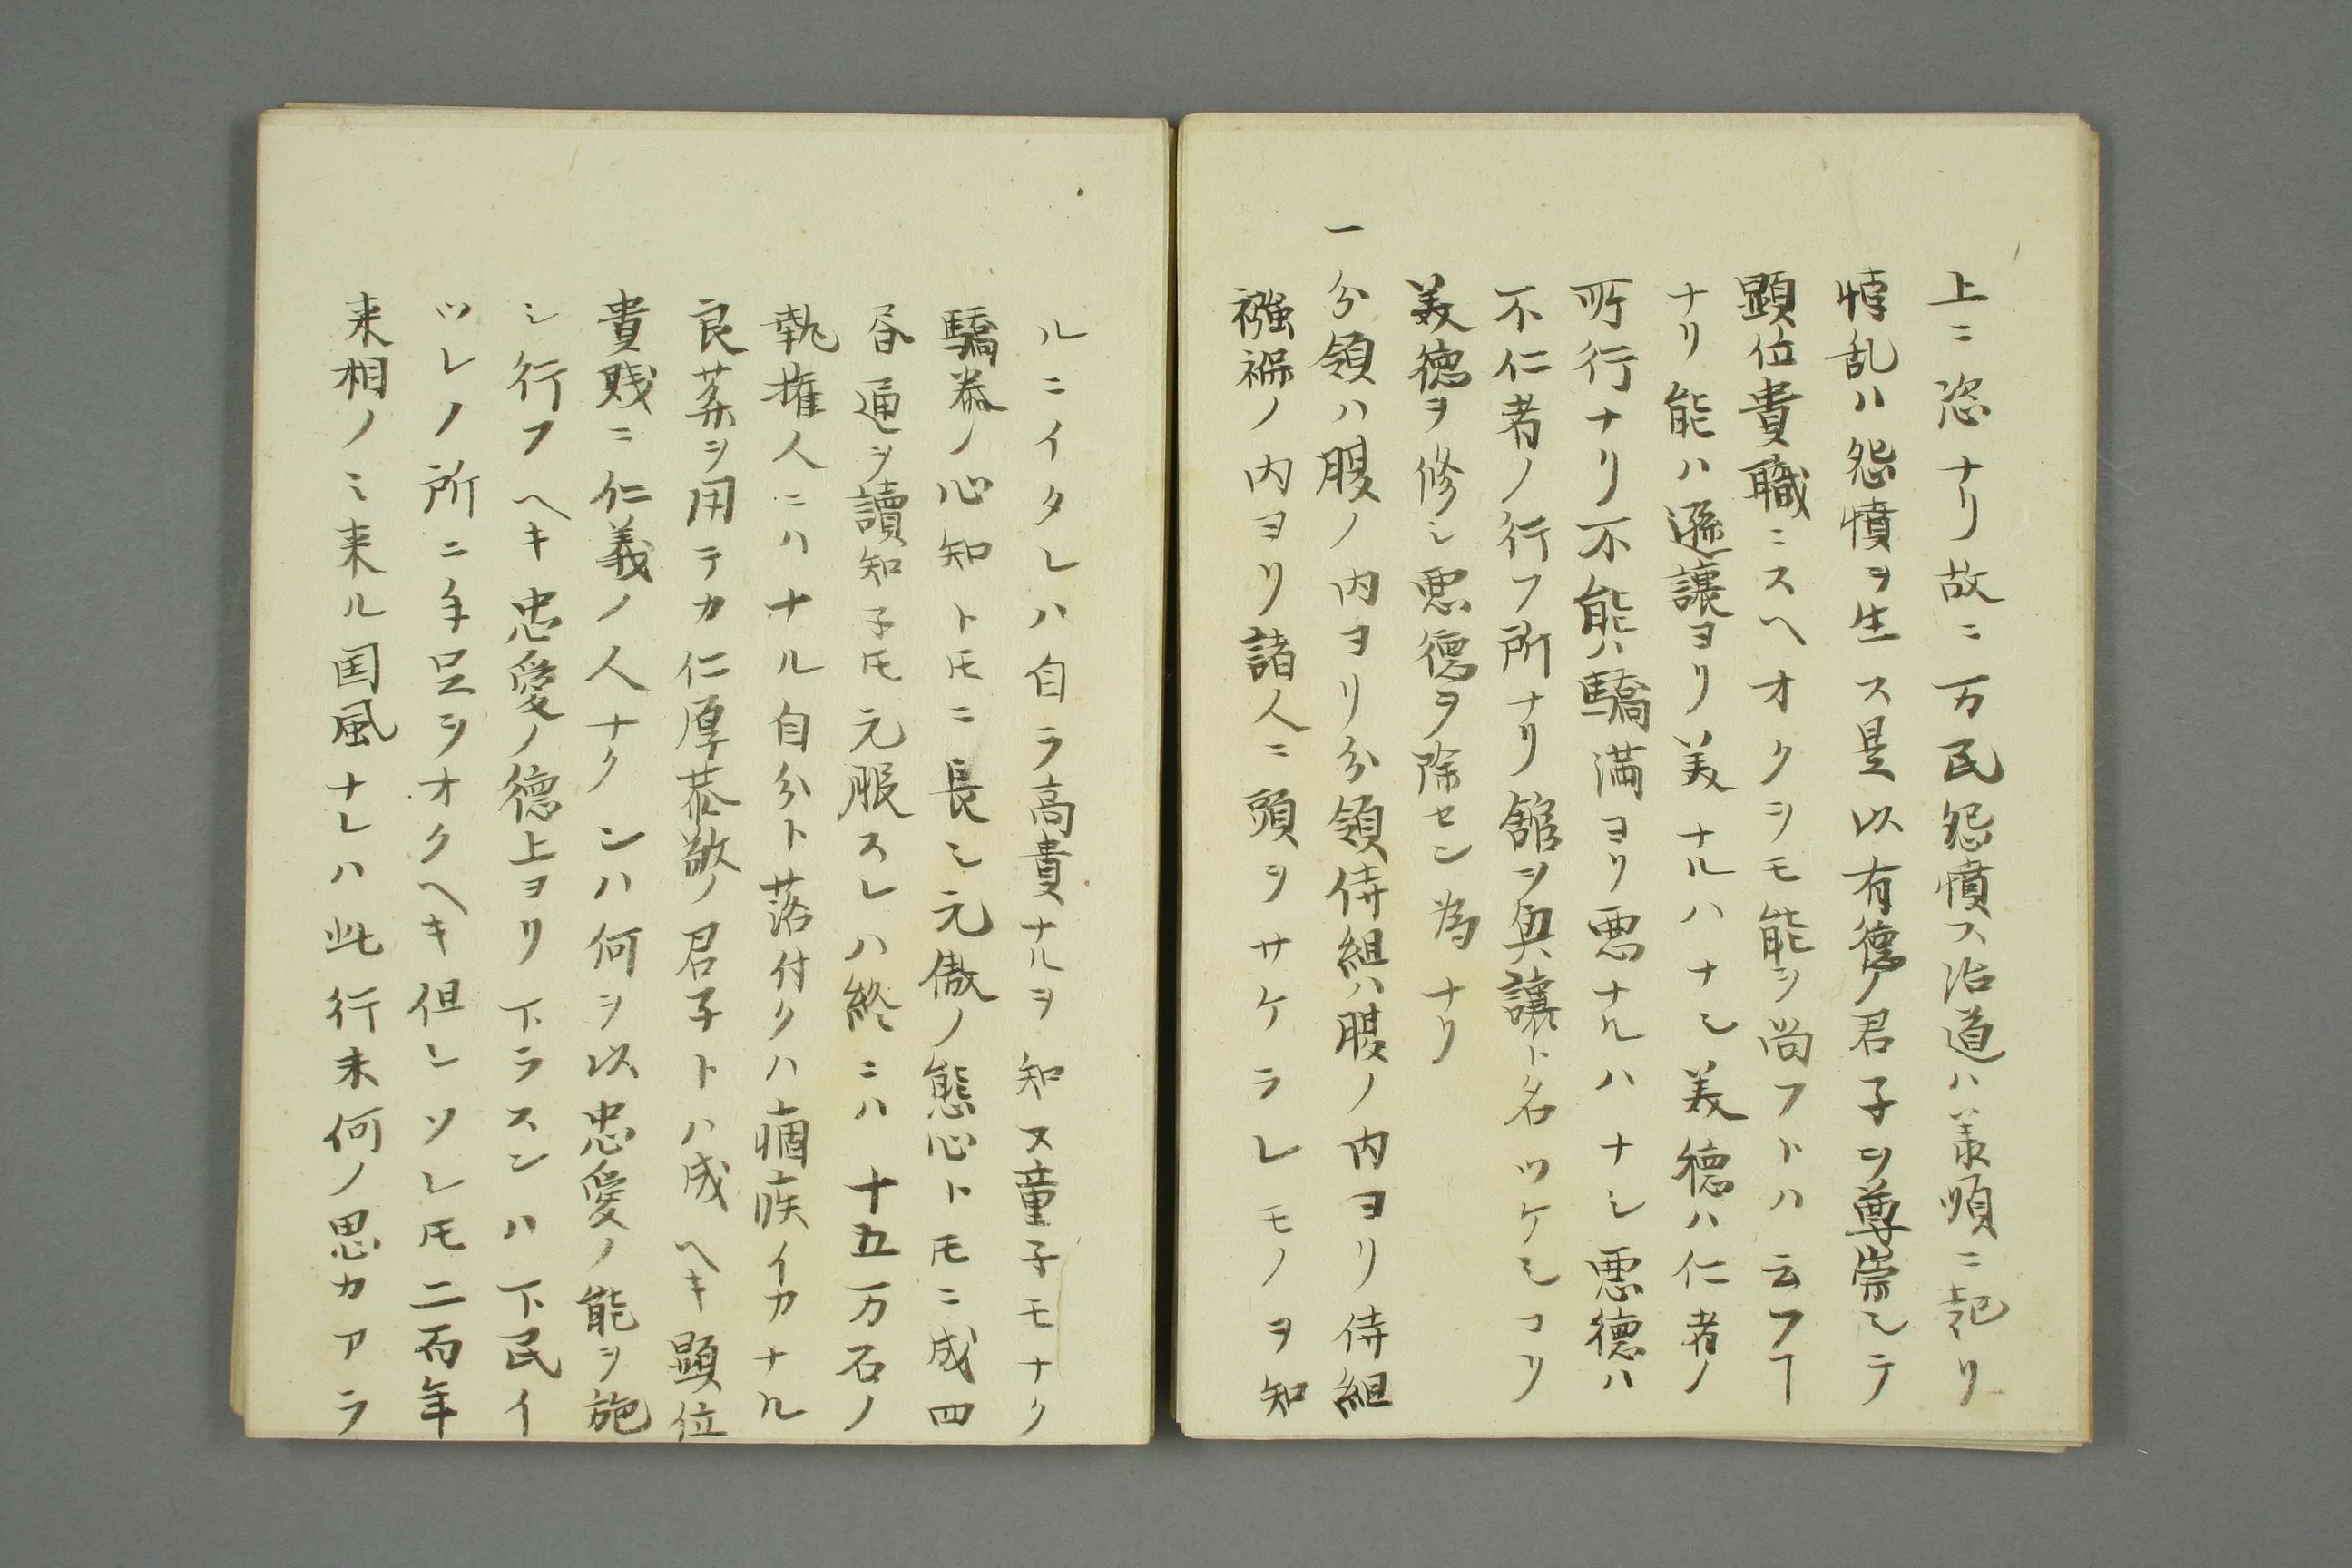 上ニ恣ナリ故ニ万民怨憤ス治道ハ義順ニ起リ
悖乱ハ怨憤ヲ生ス是以有徳ノ君子ヲ尊崇シテ
顕位貴職ニスヘオクヲモ能ヲ尚フトハ云フヿ
ナリ能ハ遜譲ヨリ美ナルハナシ美徳ハ仁者ノ
所行ナリ不能ハ驕満ヨリ悪ナルハナシ悪徳ハ
不仁者ノ行フ所ナリ館ヲ興譲ト名ツケシコリ
美徳ヲ修シ悪徳ヲ除セン為ナリ
一分領ハ腹ノ内ヨリ分領侍組ハ腹ノ内ヨリ侍組
襁褓ノ内ヨリ諸人ニ頭ヲサケラレモノヲ知
ルニイタレハ自ラ高貴ナルヲ知ヌ童子モナク
驕ノ心知トモニ長シ元傲ノ態心トモニ成四
通ヲ讀知子モ元服スレハ終ニハ十五万石ノ
執権人ニハナル自分ト落付クハ痼疾イカナル
良薬ヲ用テカ仁厚恭敬ノ君子トハ成ヘキ顕位
貴賤ニ仁義ノ人ナクンハ何ヲ以忠愛ノ能ヲ施
シ行フヘキ忠愛ノ徳上ヨリ下ラスンハ下民イ
ツレノ所ニ手足ヲオクヘキ但シソレモ二百年
来相ノミ来ル国風ナレハ此行末何ノ思カアラ